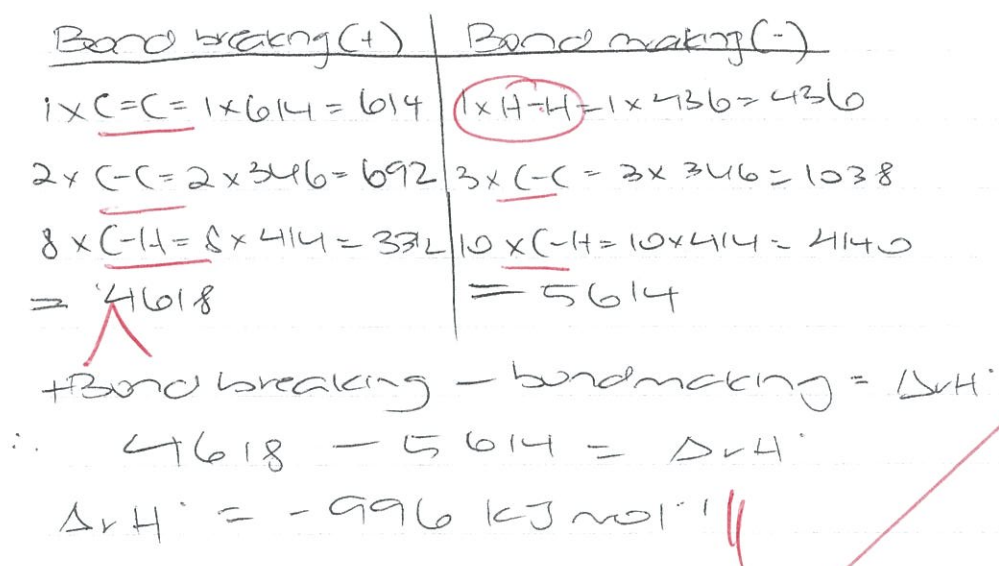 Bond breaking (+) | Bond making (-)
1 x C=C = 1x614 = 614 | 1 x H-H = 1 x 436 = 436
2 x C-C = 2 x 346 = 692 | 3 x C-C = 3 x 346 = 1038
8 x C-H = 8 x 414 = 3312 | 10 x C-H = 10x414 = 4140
= 4618 | = 5614
+Bond breaking - bondmaking = ΔrH°
∴ 4618 - 5614 = ΔrH°
ΔrH° = -996 kJ mol⁻¹